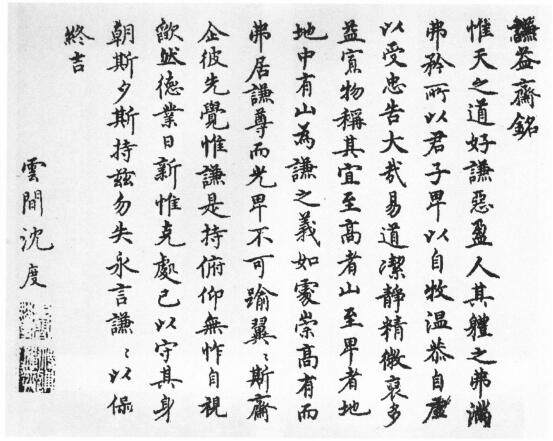 謙益齋銘
惟天之道好謙惡盈人其體之弗滿
弗矜所以君子卑以自牧溫恭自虛
以受忠告大哉易道潔靜精微裒多
益寡物稱其宜至高者山至卑者地
地中有山為謙之義如處崇高有而
弗居謙尊而光卑不可踰翼〻斯齋
企彼先覺惟謙是持俯仰無怍自視
歉然德業日新惟克處己以守其身
朝斯夕斯持玆勿失永言謙〻以保
終吉
雲間沈度